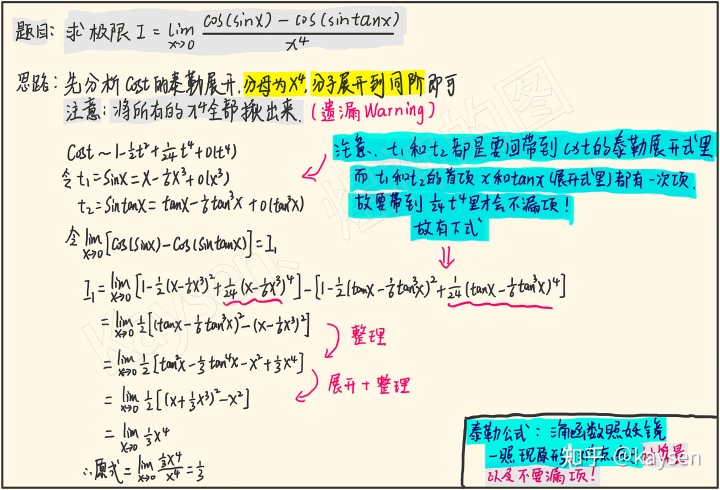 题目: 求极限 I = lim x→0 cos(sinx) - cos(sintanx) / x⁴
思路: 先分析 cost 的泰勒展开, 分母为x⁴, 分子展开到同阶即可
注意: 将所有的 x⁴全部揪出来. (遗漏Warning)
cost ~ 1-½t²+1/24 t⁴+o(t⁴)
令 t₁=sinx=x-⅙x³+o(x³)
t₂=sintanx=tanx-⅙tan³x+o(tan³x)
注意、t₁和t₂都是要回带到cost的泰勒展开式里
而 t₁和t₂的首项 x和tanx(展开式里)都有一次项,
故要带到 1/24 t⁴里才会不漏项!
故有下式
⇓
令 lim x→0 [cos(sinx)-cos(sintanx)]=I₁
I₁= lim x→0 [1-½(x-⅙x³)²+1/24(x-⅙x³)⁴]-[1-½(tanx-⅙tan³x)²+1/24(tanx-⅙tan³x)⁴]
= lim x→0 ½[(tanx-⅙tan³x)²-(x-⅙x³)²]
整理
= lim x→0 ½[tan²x-⅓tan⁴x-x²+⅓x⁴]
展开+整理
= lim x→0 ½[(x+⅓x³)²-x²]
= lim x→0 ⅓x⁴
∴原式= lim x→0 ⅓x⁴ / x⁴ =⅓
泰勒公式: 滴函数照妖镜
一照现原形
以及不要漏项!
知乎 @kaysen
kaysen